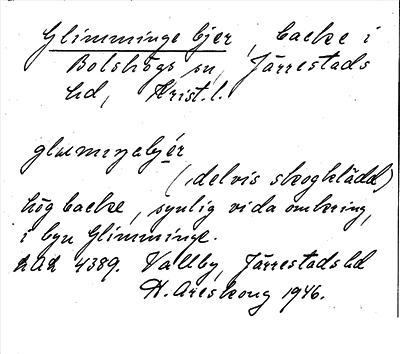 Glimminge bjer, backe i
Bolshögs sn, Järrestads
hd, Krist. l.
(delvis skogklädd)
hög backe, synlig vida omkring,
i byn Glimminge.
LUA 4389. Vallby, Järrestads hd
H. Areskoug 1946.